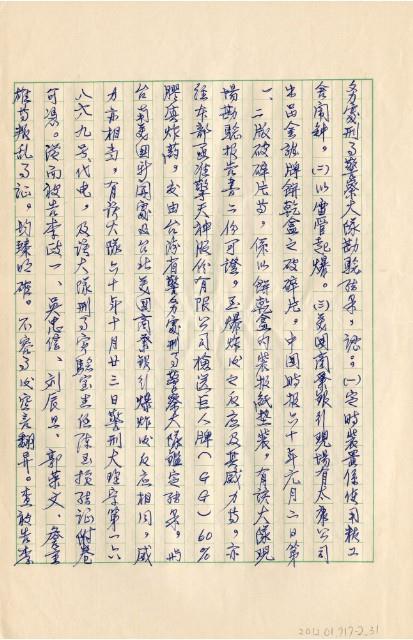 務處刑事警察大隊勘驗結果,認:㈠定時裝置係使用精工
舍鬧鐘。㈡以雷管起爆。㈢美國商業銀行現場有太康公司
出品金龍牌餅乾盒之破碎片,中國時報六十年元月二日第
一、二版破碎片等,係以餅乾盒內裝報紙墊裝。有該大隊現
場勘驗報告書二份可證,至爆炸後之反應及其威力等,亦
經本部「函准擎天神股份有限公司檢送巨人牌(GG)60%
膠質炸藥,交由台灣省警務處刑事警察大隊鑑定結果,與
台南美國新聞處及台北美國商業銀行爆炸後反應相同,威
力亦相當,有該大隊六十年十月廿三日警刑大理字第一六
八六九號代電,及該大隊刑事實驗室主任陳玉振結證附卷
可憑。從而被告李政一、吳忠信、劉辰旦、郭榮文、詹重
雄等叛亂事證,均臻明確。不容事後空言翻異。查被告李
2012.01.717-2_31